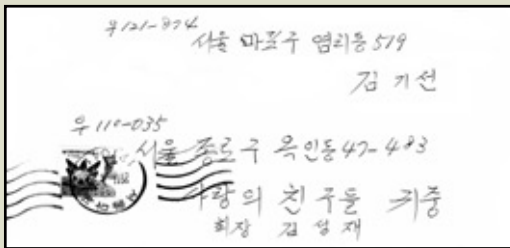 우 121-874
서울 마포구 염리동 519
김 기선
우 110-035
서울 종로구 옥인동 47-483
사랑의 친구들 귀중
회장 김성재